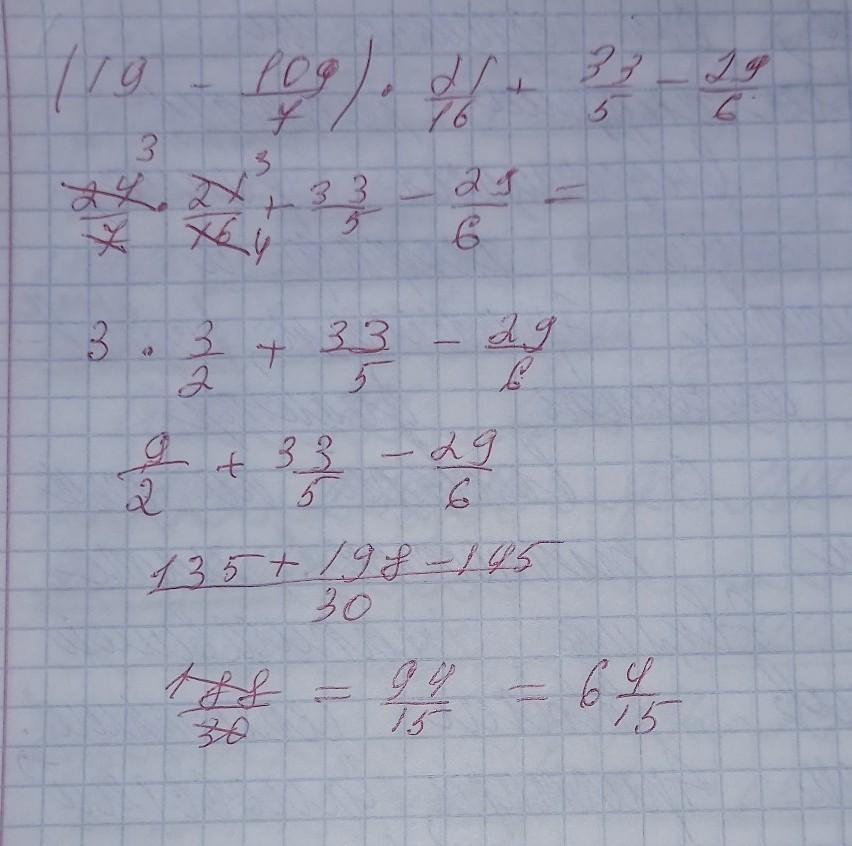 (19 - 109/7) · 21/16 + 33/5 - 29/6
24/7 3 · 21/16 3 4 + 33/5 - 29/6 =
3 · 3/2 + 33/5 - 29/6
9/2 + 33/5 - 29/6
135 + 198 - 145 / 30
188/30 = 94/15 = 6 4/15